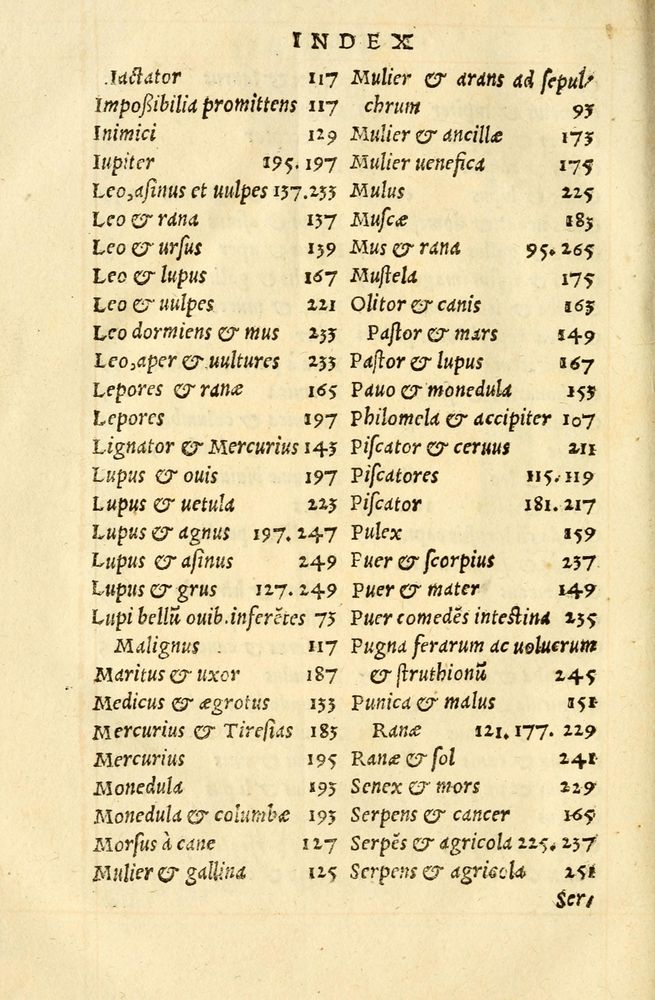 INDEX
Iactator 117
Impoßibilia promittens 117
Inimici 129
Iupiter 195. 197
Leo, asinus et uulpes 137. 233
Leo & rana 137
Leo & ursus 139
Leo & lupus 167
Leo & uulpes 221
Leo dormiens & mus 233
Leo, aper & uultures 233
Lepores & ranæ 165
Lepores 197
Lignator & Mercurius 143
Lupus & ouis 197
Lupus & uetula 223
Lupus & agnus 197. 247
Lupus & asinus 249
Lupus & grus 127. 249
Lupi bellũ ouib. inferẽtes 73
Malignus 117
Maritus & uxor 187
Medicus & ægrotus 133
Mercurius & Tiresias 183
Mercurius 195
Monedula 193
Monedula & columbæ 193
Morsus à cane 127
Mulier & gallina 125
Mulier & arans ad sepul-
chrum 93
Mulier & ancillæ 173
Mulier uenefica 175
Mulus 225
Muscæ 183
Mus & rana 95. 265
Mustela 175
Olitor & canis 163
Pastor & mars 149
Pastor & lupus 167
Pauo & monedula 153
Philomela & accipiter 107
Piscator & ceruus 211
Piscatores 115. 119
Piscator 181. 217
Pulex 159
Puer & scorpius 237
Puer & mater 149
Puer comedẽs intestina 235
Pugna ferarum ac uolucrum
& struthionũ 245
Punica & malus 151
Ranæ 121. 177. 229
Ranæ & sol 241
Senex & mors 229
Serpens & cancer 165
Serpẽs & agricola 225. 237
Serpens & agricola 251
Ser-